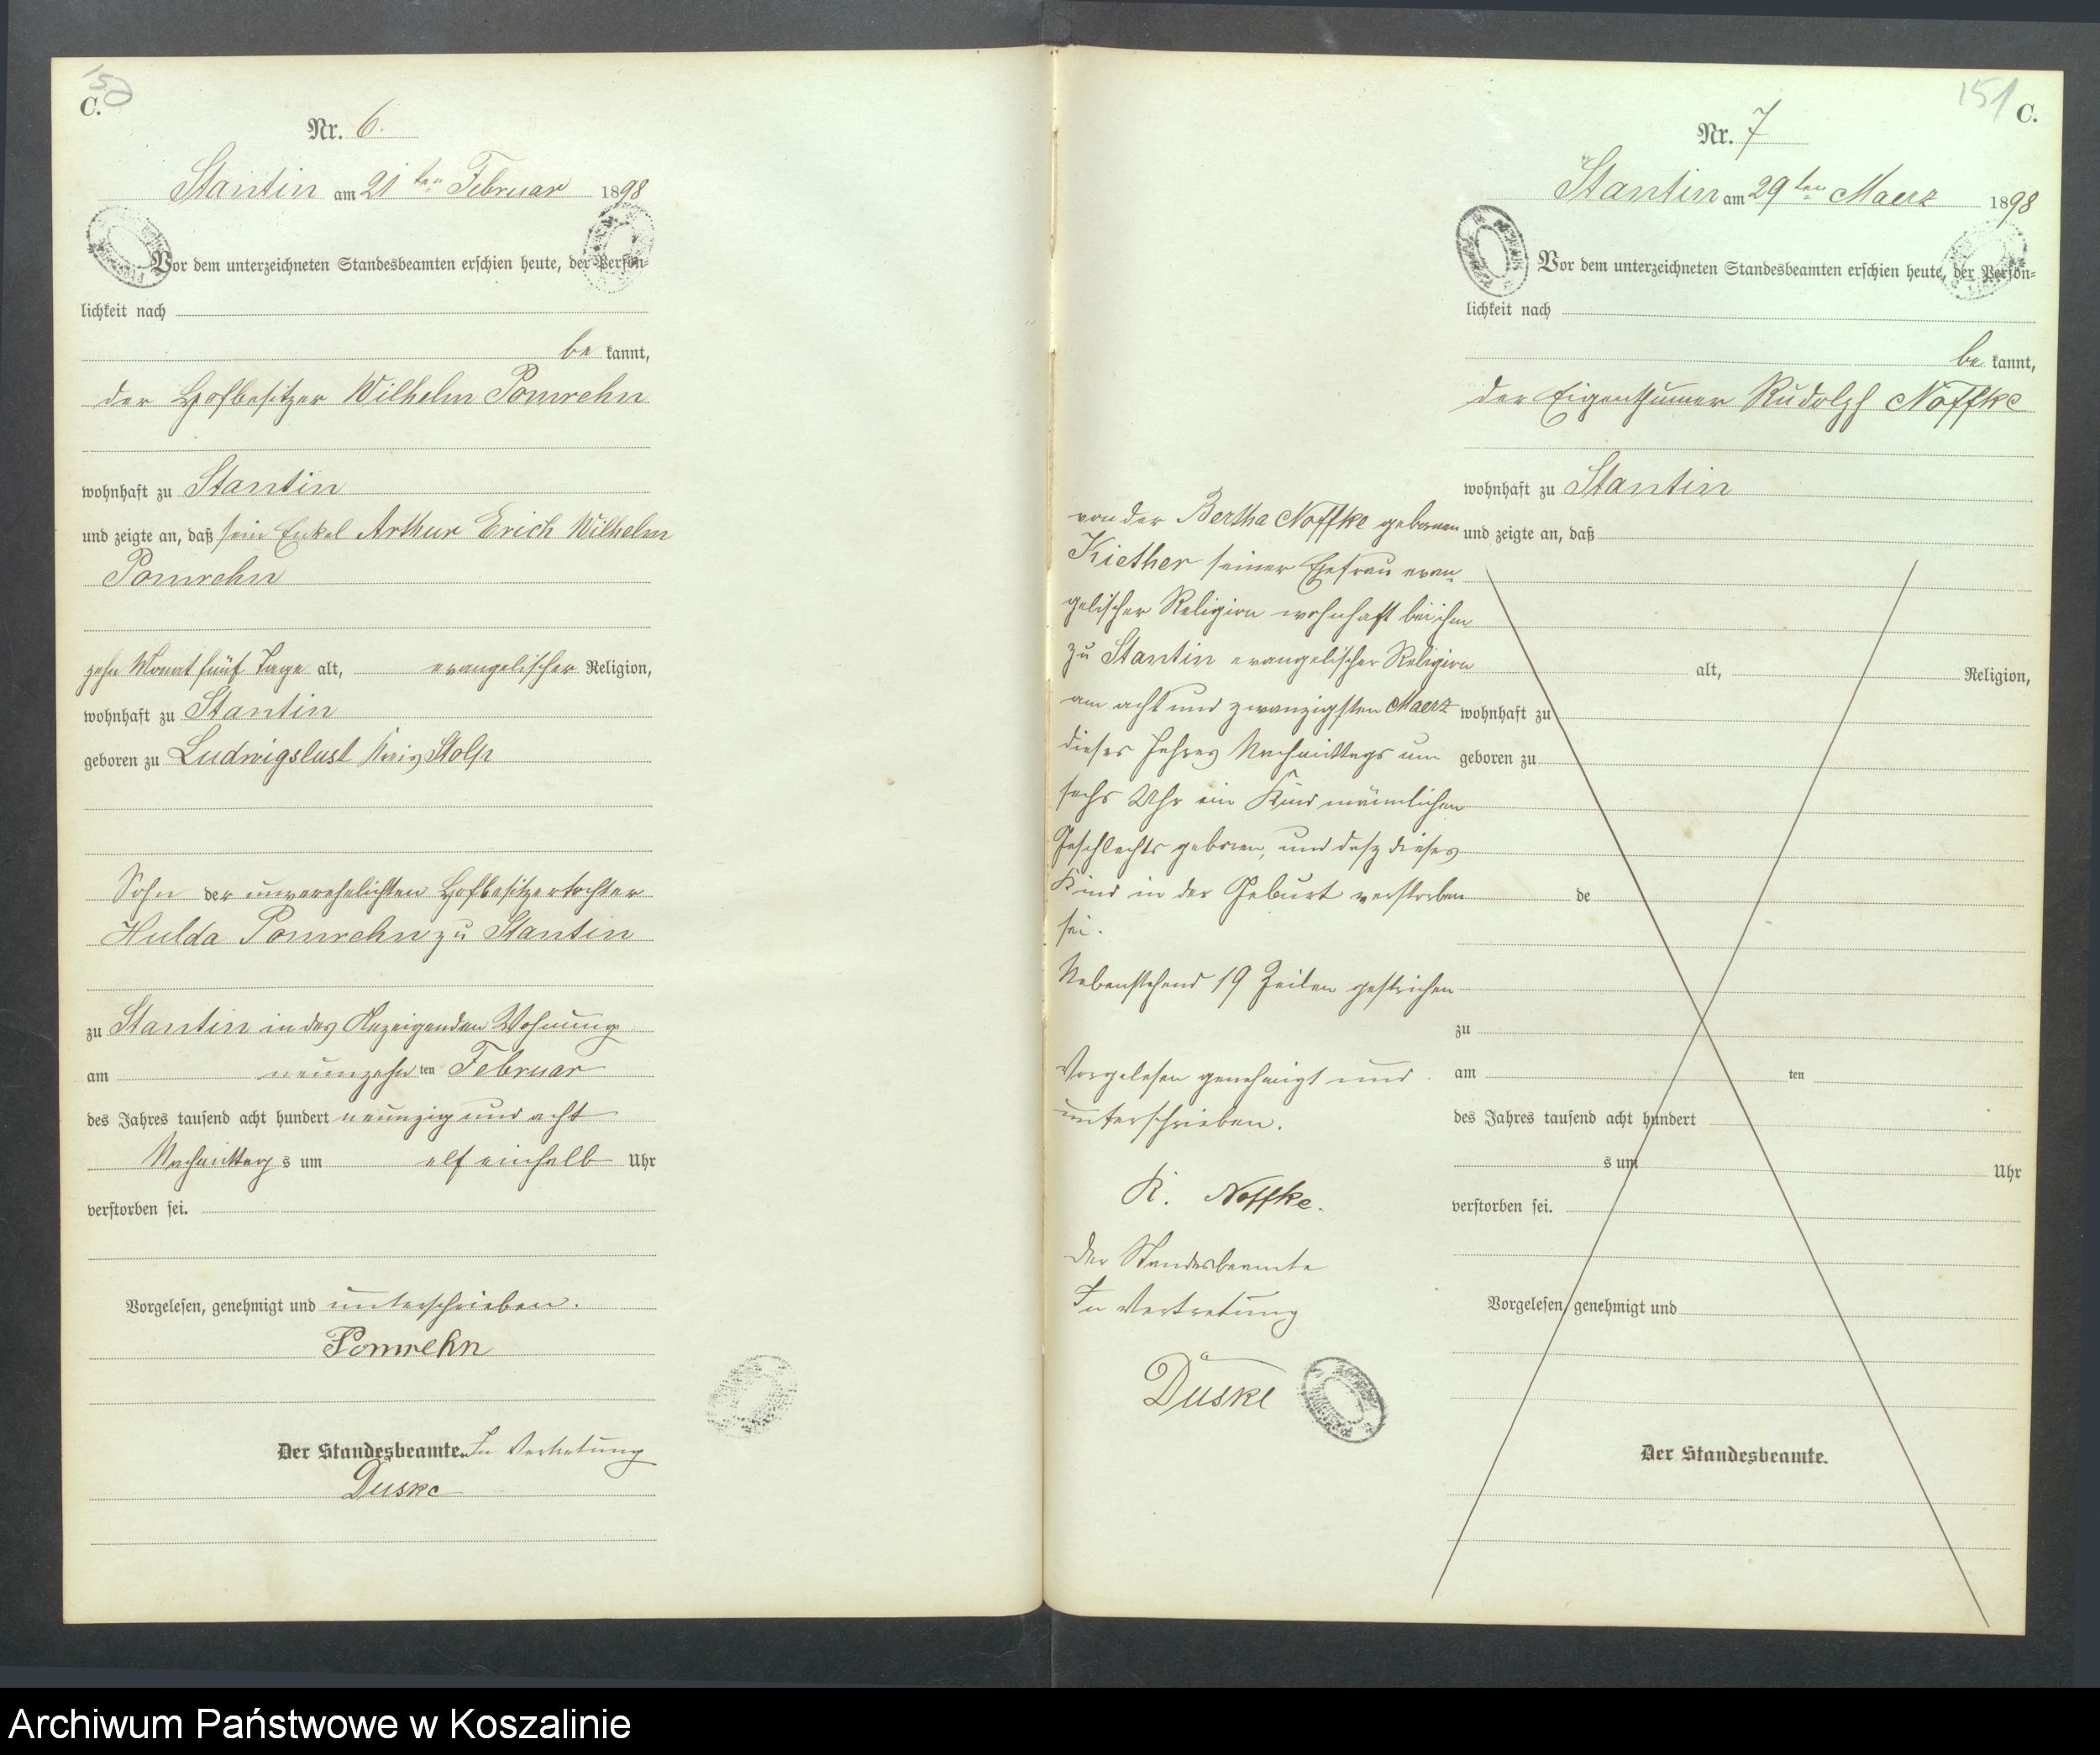 150
C.
Nr. 6.
Stantin am 21ten Februar 1898
Vor dem unterzeichneten Standesbeamten erschien heute, der Persön-
lichkeit nach
be kannt,
der Hofbesitzer Wilhelm Pomrehn
wohnhaft zu Stantin
und zeigte an, daß sein Enkel Arthur Erich Wilhelm
Pomrehn
zehn Monat fünf Tage alt, evangelischer Religion,
wohnhaft zu Stantin
geboren zu Ludwigslust Kreis Stolp
Sohn der unverehelichten Hofbesitzertochter
Hulda Pomrehn zu Stantin
zu Stantin in des Anzeigenden Wohnung
am neunzehn ten Februar
des Jahres tausend acht hundert neunzig und acht
Nachmittag s um elf einhalb Uhr
verstorben sei.
Vorgelesen, genehmigt und unterschrieben.
Pomrehn
Der Standesbeamte. In Vertretung
Düske
151
C.
Nr. 7
Stantin am 29ten Maerz 1898
Vor dem unterzeichneten Standesbeamten erschien heute, der Persön-
lichkeit nach
be kannt,
der Eigenthümer Rudolph Noffke
wohnhaft zu Stantin
und zeigte an, daß
von der Bertha Noffke gebornen
Kiether seiner Ehefrau evan-
gelischer Religion wohnhaft bei ihm
zu Stantin evangelischer Religion
am acht und zwanzigsten Maerz
dieses Jahres Nachmittags um
sechs Uhr ein Kind männlichen
Geschlechts geboren, und dasz dieses
Kind in der Geburt verstorben
sei.
Nebenstehend 19 Zeilen gestrichen
Vorgelesen genehmigt und
unterschrieben.
R. Noffke.
Der Standesbeamte
In Vertretung
Düske
alt, Religion,
wohnhaft zu
geboren zu
de
zu
am ten
des Jahres tausend acht hundert
s um Uhr
verstorben sei.
Vorgelesen, genehmigt und
Der Standesbeamte.
Archiwum Państwowe w Koszalinie